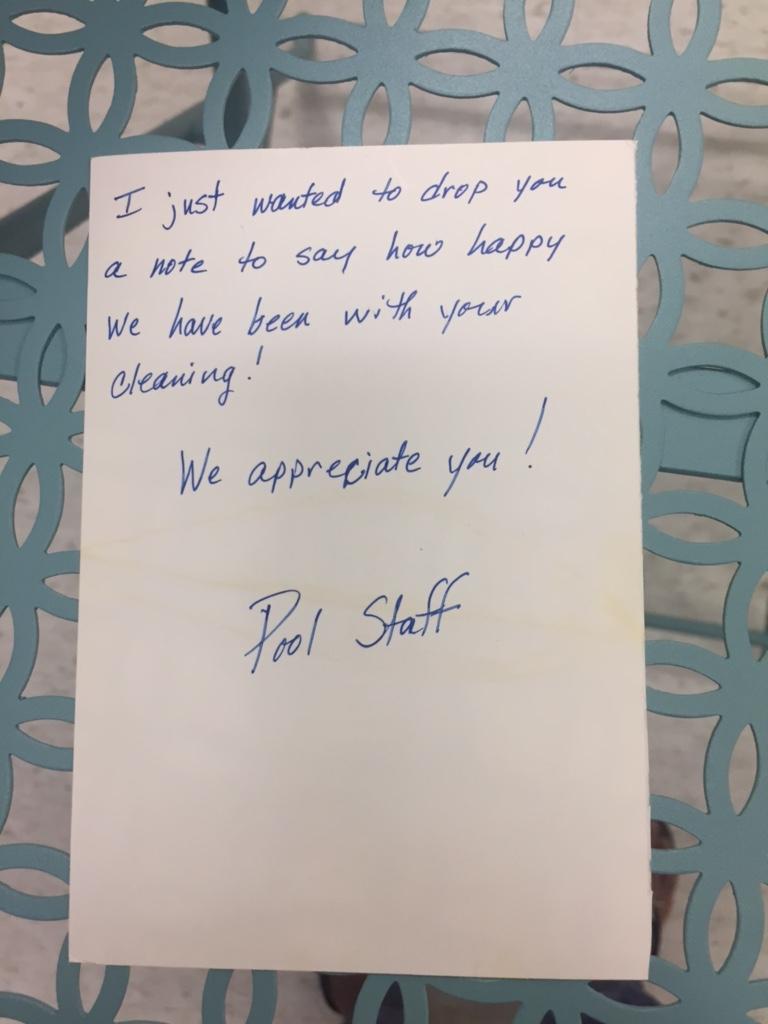 I just wanted to drop you
a note to say how happy
we have been with your
cleaning!
We appreciate you!
Pool Staff